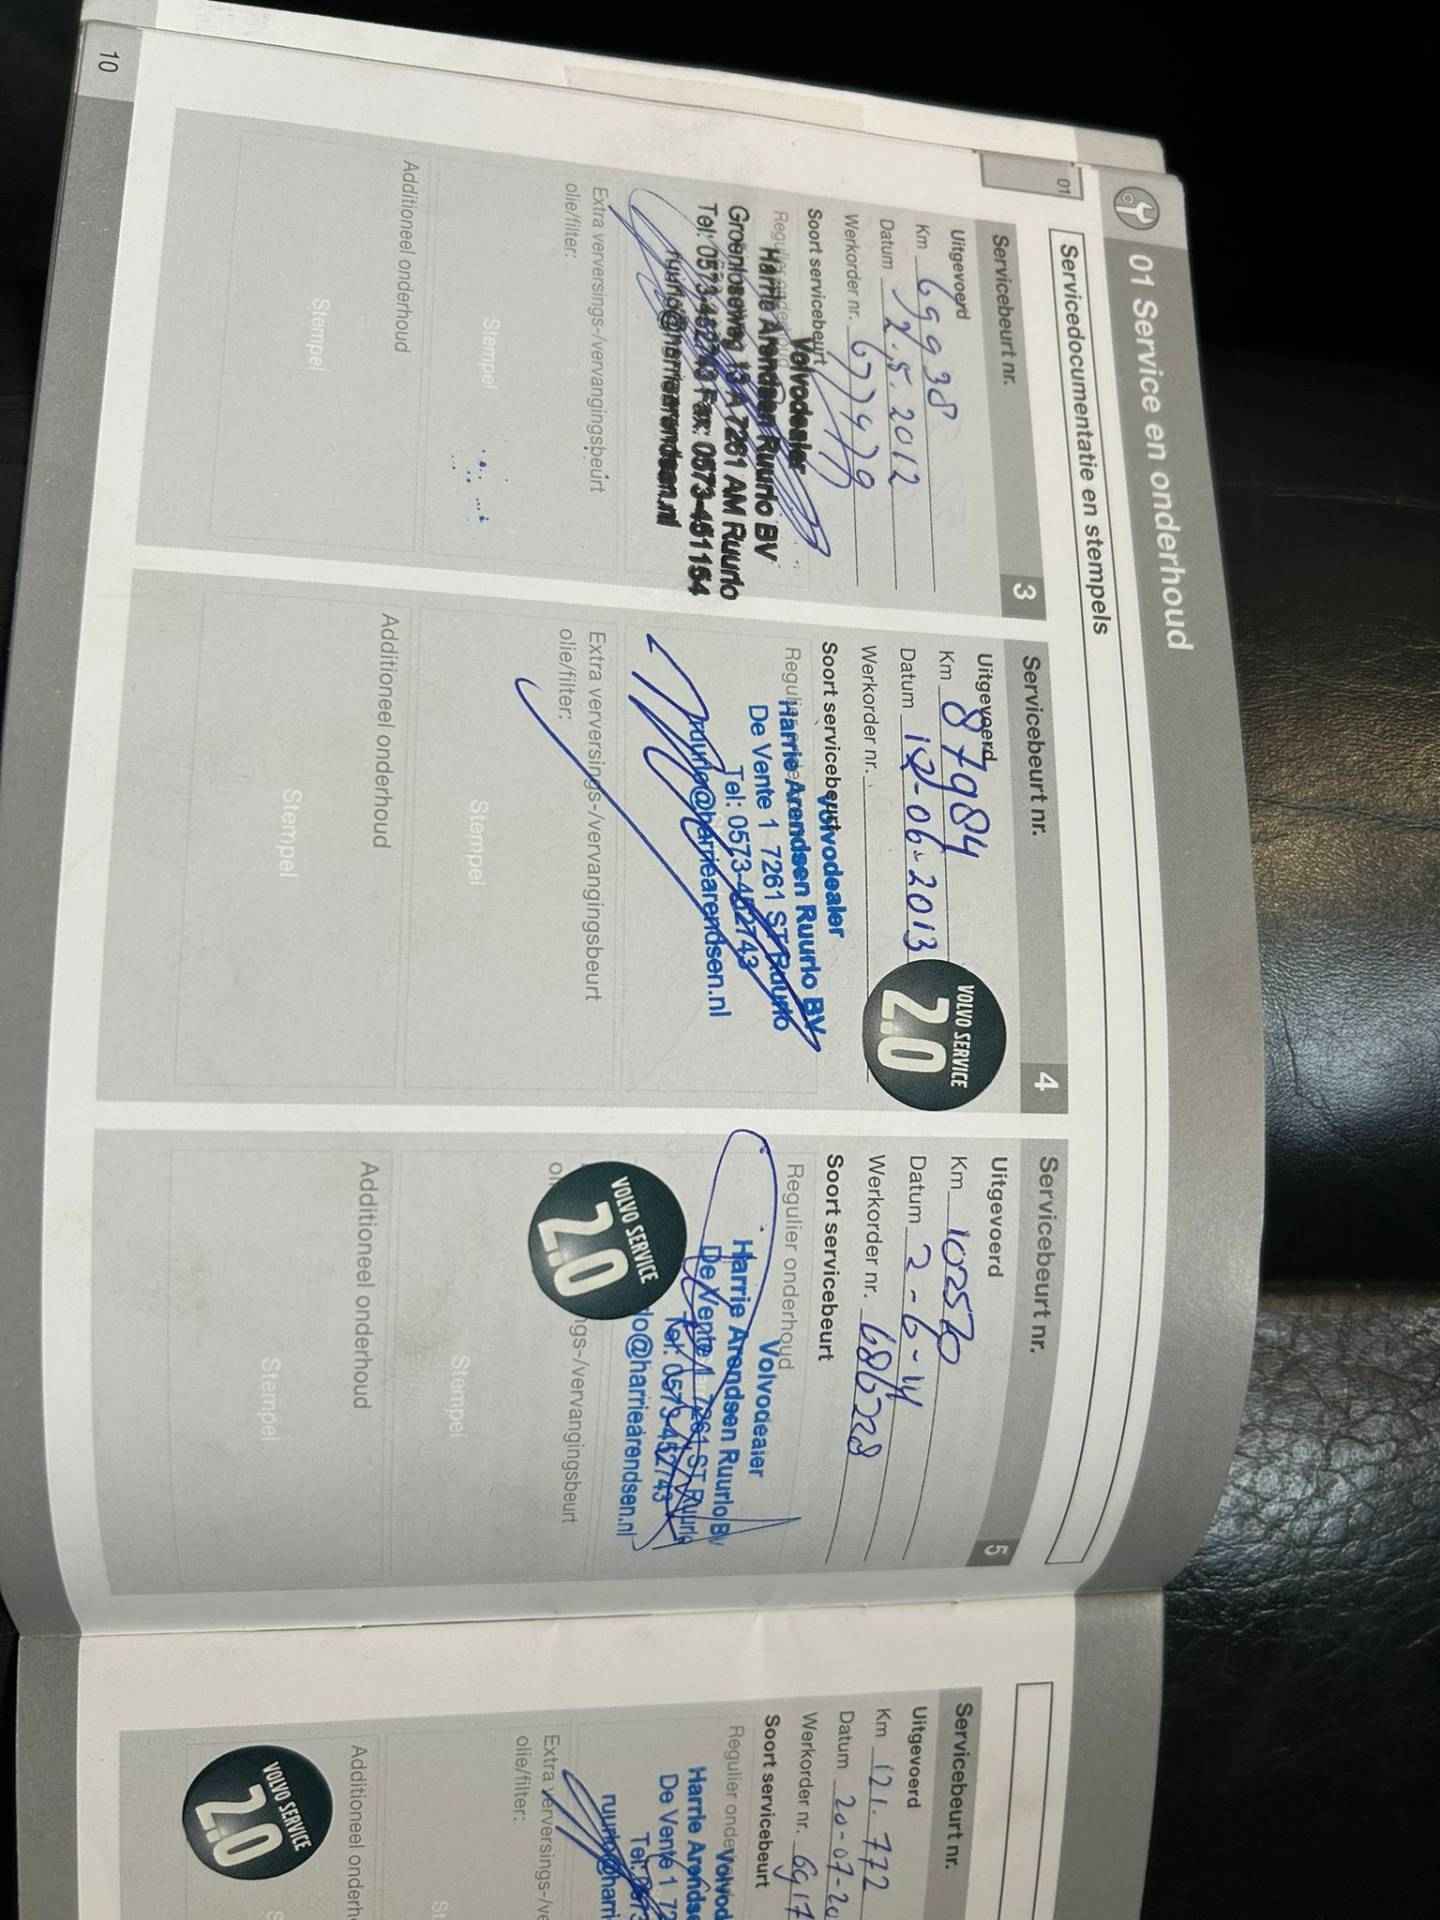 01 Service en onderhoud
01
Servicedocumentatie en stempels
Servicebeurt nr. 3
Uitgevoerd
Km 69938
Datum 12.5.2012
Werkorder nr. 67479
Soort servicebeurt
Regulier onderhoud
Volvodealer
Harrie Arendsen Ruurlo BV
Groenloseweg 13 A 7261 AM Ruurlo
Tel: 0573-452743 Fax: 0573-451154
ruurlo@harriearendsen.nl
Extra verversings-/vervangingsbeurt
olie/filter:
Stempel
Additioneel onderhoud
Stempel
Servicebeurt nr. 4
Uitgevoerd
Km 87984
Datum -06-2013
Werkorder nr.
VOLVO SERVICE
2.0
Soort servicebeurt
Volvodealer
Harrie Arendsen Ruurlo BV
De Vente 1 7261 ST Ruurlo
Tel: 0573-452743
ruurlo@harriearendsen.nl
Extra verversings-/vervangingsbeurt
olie/filter:
Stempel
Additioneel onderhoud
Stempel
Servicebeurt nr. 5
Uitgevoerd
Km 102570
Datum 2-6-14
Werkorder nr. 68628
Soort servicebeurt
Regulier onderhoud
Volvodealer
Harrie Arendsen Ruurlo BV
De Vente 1 7261 ST Ruurlo
Tel: 0573-452743
lo@harriearendsen.nl
VOLVO SERVICE
2.0
ngs-/vervangingsbeurt
Stempel
Additioneel onderhoud
Stempel
10
Servicebeurt nr.
Uitgevoerd
Km 121.772
Datum 20-07-20
Werkorder nr. 6917
Soort servicebeurt
Regulier onde
Volvod
Harrie Arendse
De Vente 1 72
Tel: 0573
ruurlo@harri
Extra verversings-/ve
olie/filter:
St
Additioneel onderh
VOLVO SERVICE
2.0
S